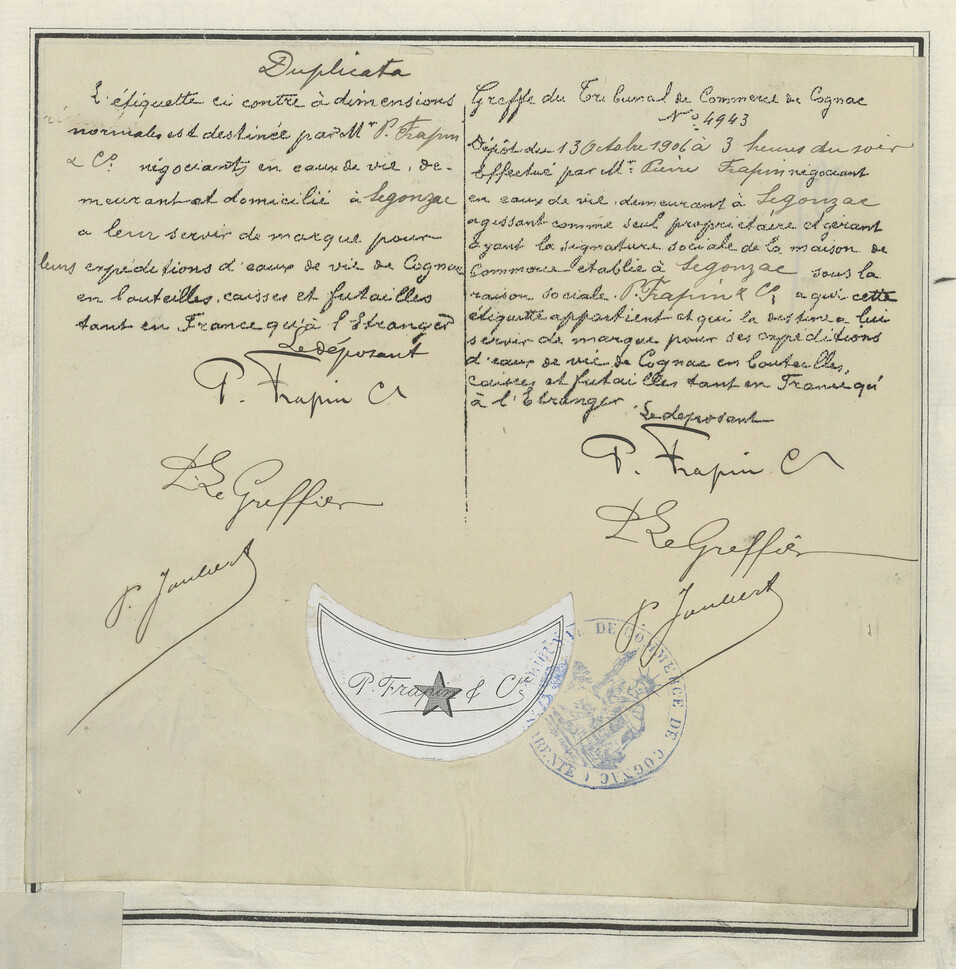 Duplicata
L'étiquette ci contre à dimensions
normales est destinée par Mr P. Frapin
& Cie négociants en eaux de vie, de-
meurant et domicilié à Segonzac
a leur servir de marque pour
leurs expéditions d'eaux de vie de Cognac
en bouteilles, caisses et futailles
tant en France qu'à l'Etranger
Le déposant
P. Frapin Cie
Le Greffier
P. Joubert
Greffe du Tribunal de Commerce de Cognac
No 4943
Dépôt du 13 Octobre 1906 à 3 heures du soir
Effectué par Mr Pierre Frapin négociant
en eaux de vie, demeurant à Segonzac
agissant comme seul propriétaire et gérant
ayant la signature sociale de la maison de
Commerce établie à Segonzac sous la
raison sociale P. Frapin & Cie, a qui cette
étiquette appartient et qui la destine a lui
servir de marque pour ses expéditions
d'eaux de vie de Cognac en bouteilles,
caisses et futailles tant en France qu'
à l'Etranger
Le déposant
P. Frapin Cie
Le Greffier
P. Joubert
P. Frapin & Cie
TRIBUNAL DE COMMERCE DE COGNAC